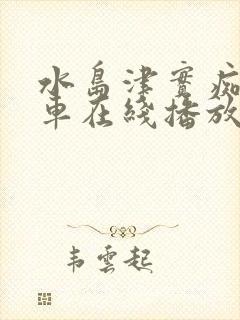 水島津實痴
車在綫播放
韦雲起